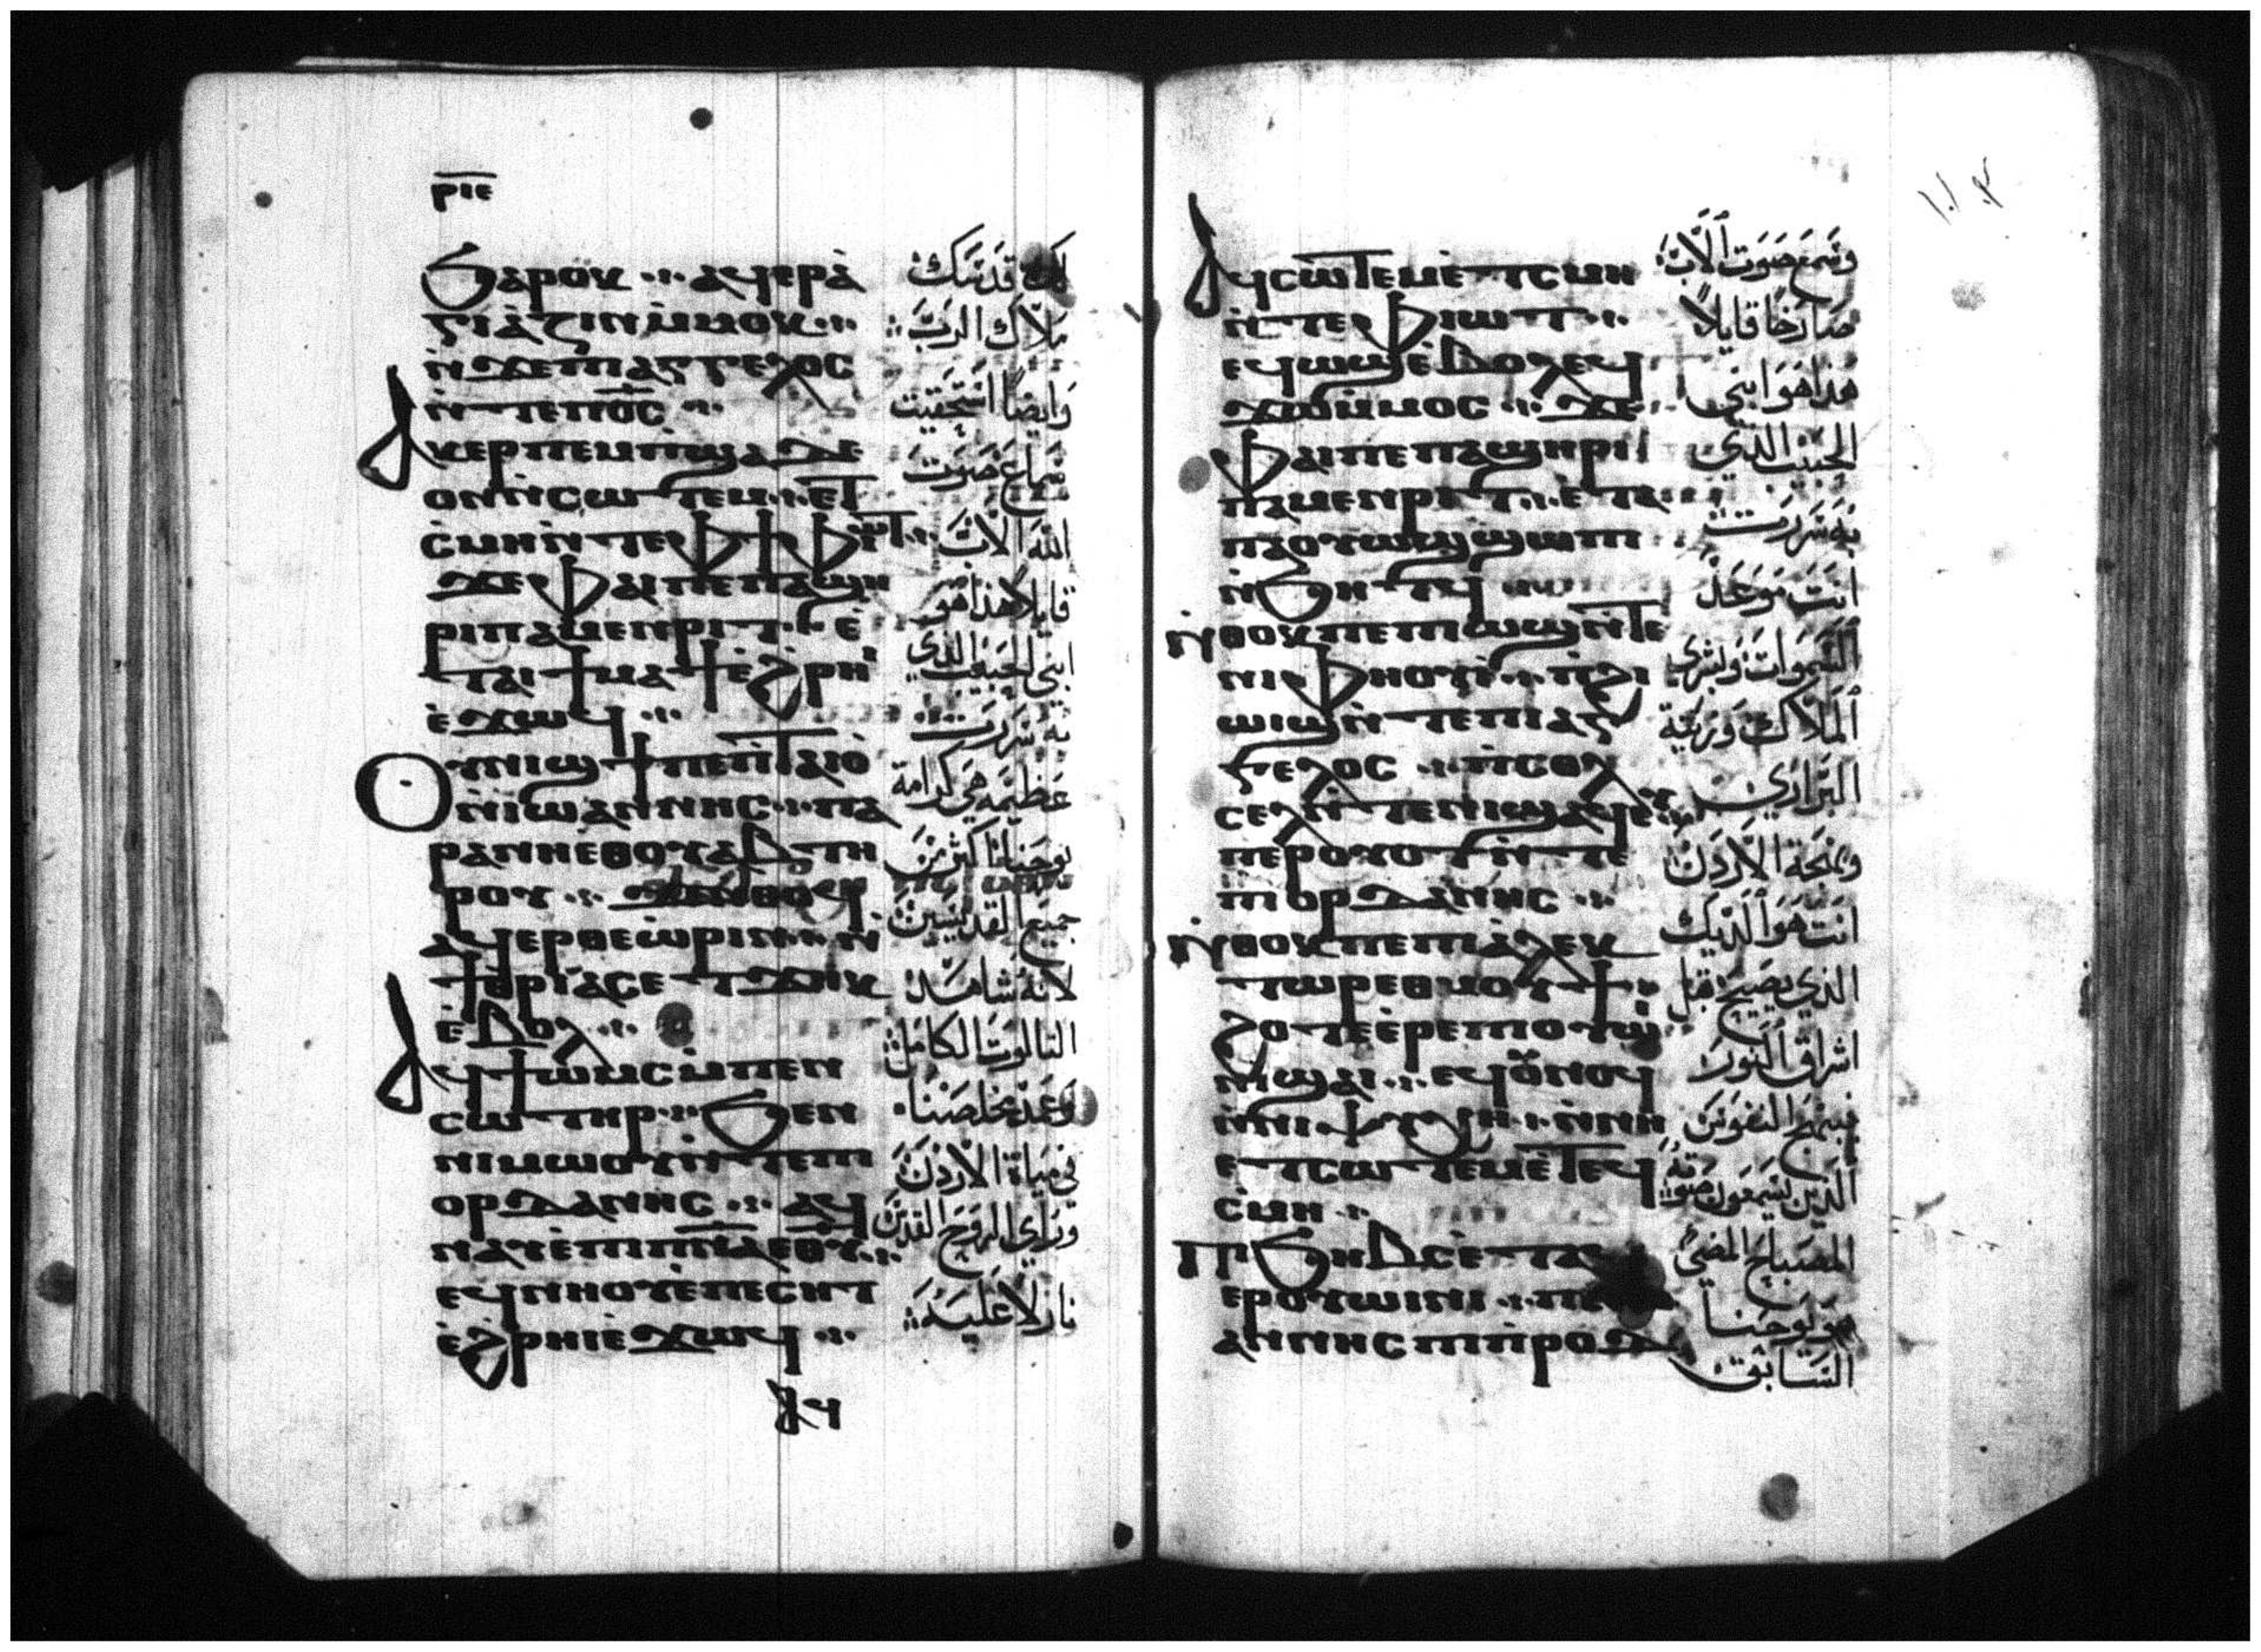 ⲣⲓⲉ
ϧⲁⲣⲟⲕ ⲁϥⲉⲣⲁ̀
ⲅⲓⲁⲍⲓⲛ ⲙ̀ⲙⲟⲕ
ⲛ̀ϫⲉⲡⲓⲁⲅⲅⲉⲗⲟⲥ
ⲛ̀ⲧⲉⲡⲟ̅ⲥ̅
ⲁⲕⲉⲣⲡⲉⲙⲡϣⲁ ⲇⲉ
ⲟⲛ ⲛ̀ⲥⲱⲧⲉⲙ ⲉ̀ϯ
ⲥ̀ⲙⲏ ⲛ̀ⲧⲉⲫϯ ⲫⲓⲱⲧ
ϫⲉ ⲫⲁⲓ ⲡⲉ ⲡⲁϣⲏ
ⲣⲓ ⲡⲁⲙⲉⲛⲣⲓⲧ ⲉ̀
ⲧⲁⲓϯⲙⲁϯ ⲉ̀ϩⲣⲏⲓ
ⲉ̀ϫⲱϥ
ⲟⲩⲛⲓϣϯ ⲡⲉ ⲡ̀ⲧⲁⲓⲟ̀
ⲛ̀ⲓⲱⲁⲛⲛⲏⲥ ⲡⲁ
ⲣⲁ ⲛⲏⲉⲑⲟⲩⲁⲃ ⲧⲏ
ⲣⲟⲩ ϫⲉ ⲛ̀ⲑⲟϥ
ⲁϥⲉⲣⲑⲉⲱ̀ⲣⲓⲛ ⲛ̀
ϯⲑⲣⲓⲁⲥ ⲉⲧϫⲏⲕ
ⲉ̀ⲃⲟⲗ
ⲁϥϯⲱⲙⲥ ⲙ̀ⲡⲉⲛ
ⲥⲱⲧⲏⲣ ϧⲉⲛ
ⲛⲓⲙⲱⲟⲩ ⲛ̀ⲧⲉⲡⲓ
ⲟⲣⲇⲁⲛⲏⲥ ⲁϥ
ⲛⲁⲩ ⲉ̀ⲡⲓⲡ̅ⲛ̅ⲁ̅ ⲉⲑⲩ
ⲉϥⲛⲏⲟⲩ ⲉ̀ⲡⲉⲥⲏⲧ
ⲉ̀ϩⲣⲏⲓ ⲉ̀ϫⲱϥ
ⲁϥ
قدسك
ملاك الرب
وايضا استحقيت
سماع صوت
الله الاب
قايلا هذا هو
ابني الحبيب الذي
به سررت
عظيمه هي كرامة
يوحنا اكثر من
جميع القديسين
لانه شاهد
التالوت الكامل
وعمد مخلصنا
في مياة الاردن
وراي الروح القدس
نازلا عليه
ⲁϥⲥⲱⲧⲉⲙ ⲉ̀ⲧⲥⲙⲏ
ⲛ̀ⲧⲉ ⲫⲓⲱⲧ
ⲉϥⲱϣ ⲉ̀ⲃⲟⲗ ⲉϥ
ϫⲱ ⲙ̀ⲙⲟⲥ ϫⲉ
ⲫⲁⲓ ⲡⲉ ⲡⲁϣⲏⲣⲓ
ⲡⲁⲙⲉⲛⲣⲓⲧ ⲉ̀ⲧⲁ
ⲡⲁⲟⲩⲱϣ ϣⲱⲡⲓ
ⲛ̀ϧⲏⲧϥ
ⲛ̀ⲑⲟⲕ ⲡⲉ ⲡⲓⲱϣ ⲛ̀ⲧⲉ
ⲛⲓⲫⲏⲟⲩⲓ̀ ⲡ̀ϩⲓ
ϣⲉⲛⲛⲟⲩϥⲓ ⲛ̀ⲧⲉⲡⲓⲁⲅ
ⲅⲉⲗⲟⲥ ⲡ̀ⲥⲟⲗ
ⲥⲉⲗ ⲛ̀ⲧⲉ ⲛⲓϣⲁϥⲉⲩ
ⲡⲉⲣⲟⲩⲟⲧ ⲛ̀ⲧⲉ
ⲡⲓⲟⲣⲇⲁⲛⲏⲥ
ⲛ̀ⲑⲟⲕ ⲡⲉ ⲡⲓⲁ̀ⲗⲉⲕ
ⲧⲱⲣ ⲉⲑⲙⲟⲩϯ
ϩⲟⲧⲉ ⲉ̀ⲣⲉ ⲡⲓⲟⲩⲱⲓ
ⲛⲓ ϣⲁⲓ ⲉϥⲟ̀ⲛⲟϥ
ⲛ̀ⲛⲓⲯⲩⲭⲏ ⲛ̀ⲛⲏ
ⲉⲧⲥⲱⲧⲉⲙ ⲉ̀ⲧⲉϥ
ⲥ̀ⲙⲏ
ⲡⲓϧⲏⲃⲥ ⲉ̀ⲧⲁ
ⲉⲣⲟⲩⲱⲓⲛⲓ
ⲁⲛⲛⲏⲥ ⲡⲓⲡ̀ⲣⲟⲇ
وسمع صوت الاب
صارخا قايلا
هذا هو ابني
الحبيب الذي
به سررت
انت هو وعد
السموات وبشري
الملاك وزينة
البراري
وبهجة الاردن
انت هو الديك
الذي يصيح قبل
اشراق النور
نفوس
الذين يسمعون صوته
المصباح المضي
هو يوحنا
السابق